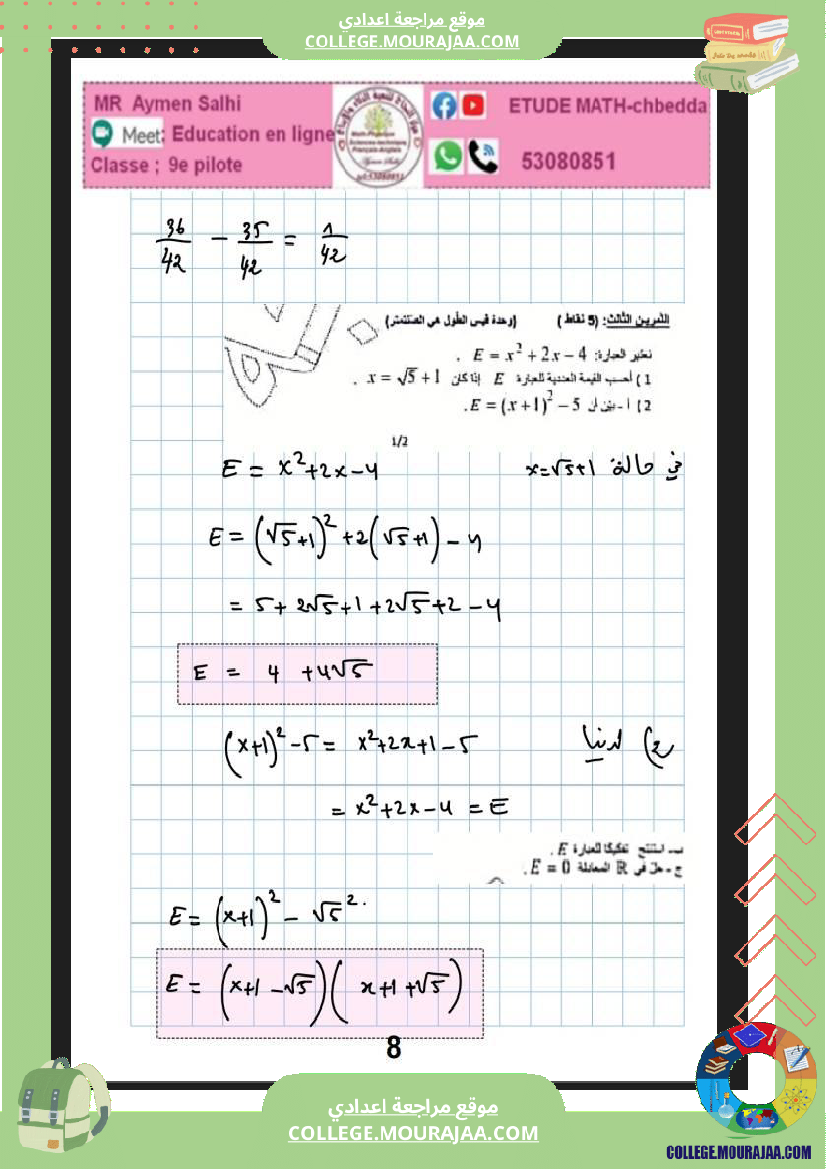 موقع مراجعة اعدادي
COLLEGE.MOURAJAA.COM
MR Aymen Salhi
Meet: Education en ligne
Classe ; 9e pilote
ETUDE MATH-chbedda
53080851
36/42 - 35/42 = 1/42
التمرين الثالث: (5 نقاط) (وحدة قيس الطول هي الصنتمتر)
نعتبر العبارة: E = x² + 2x - 4 .
1) أحسب القيمة العددية للعبارة E إذا كان x = √5 + 1 .
2) أ - بيّن أن E = (x+1)² - 5.
1/2
E = x²+2x-4 في حالة x=√5+1
E = (√5+1)² +2(√5+1) - 4
= 5+ 2√5+1+2√5+2 -4
E = 4 +4√5
(x+1)² -5 = x²+2x+1-5 لدينا
= x²+2x-4 = E
ب- استنتج تفكيكا للعبارة E.
ج - حل في ℝ المعادلة E = 0.
E = (x+1)² - √5².
E = (x+1 -√5)( x+1 +√5)
8
موقع مراجعة اعدادي
COLLEGE.MOURAJAA.COM
COLLEGE.MOURAJAA.COM